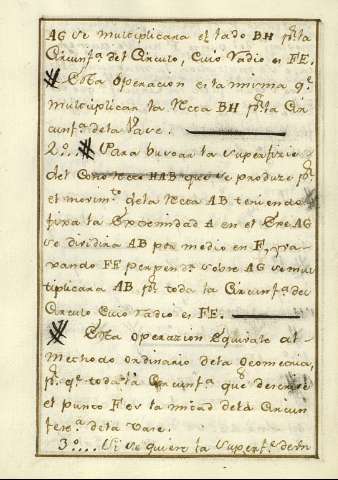 AG se multiplicara el lado BH pr la
Circunfa del Circulo, cuio radio es FE.
# Esta operacion es la misma qe
multiplicar la recta BH pr la Cir
cunfa dela Vase.
2o.. # Para buscar la superfizie
del Cono recto HAB que se produze pr
el movimto dela recta AB teniendo
fixa la Extremidad A en el Exe AG
se dividira AB por medio en F, y ti-
rando FE perpendr sobre AG se mul
tiplicara AB pr toda la Circunfa del
Circulo cuio radio es FE.
# Esta operazion Equivale al
Methodo ordinario dela Geometria,
pr qe toda la Circunfa que descrive
el punto F es la mitad dela Circun
fera dela Vase.
3o.... Si se quiere la superfe de un